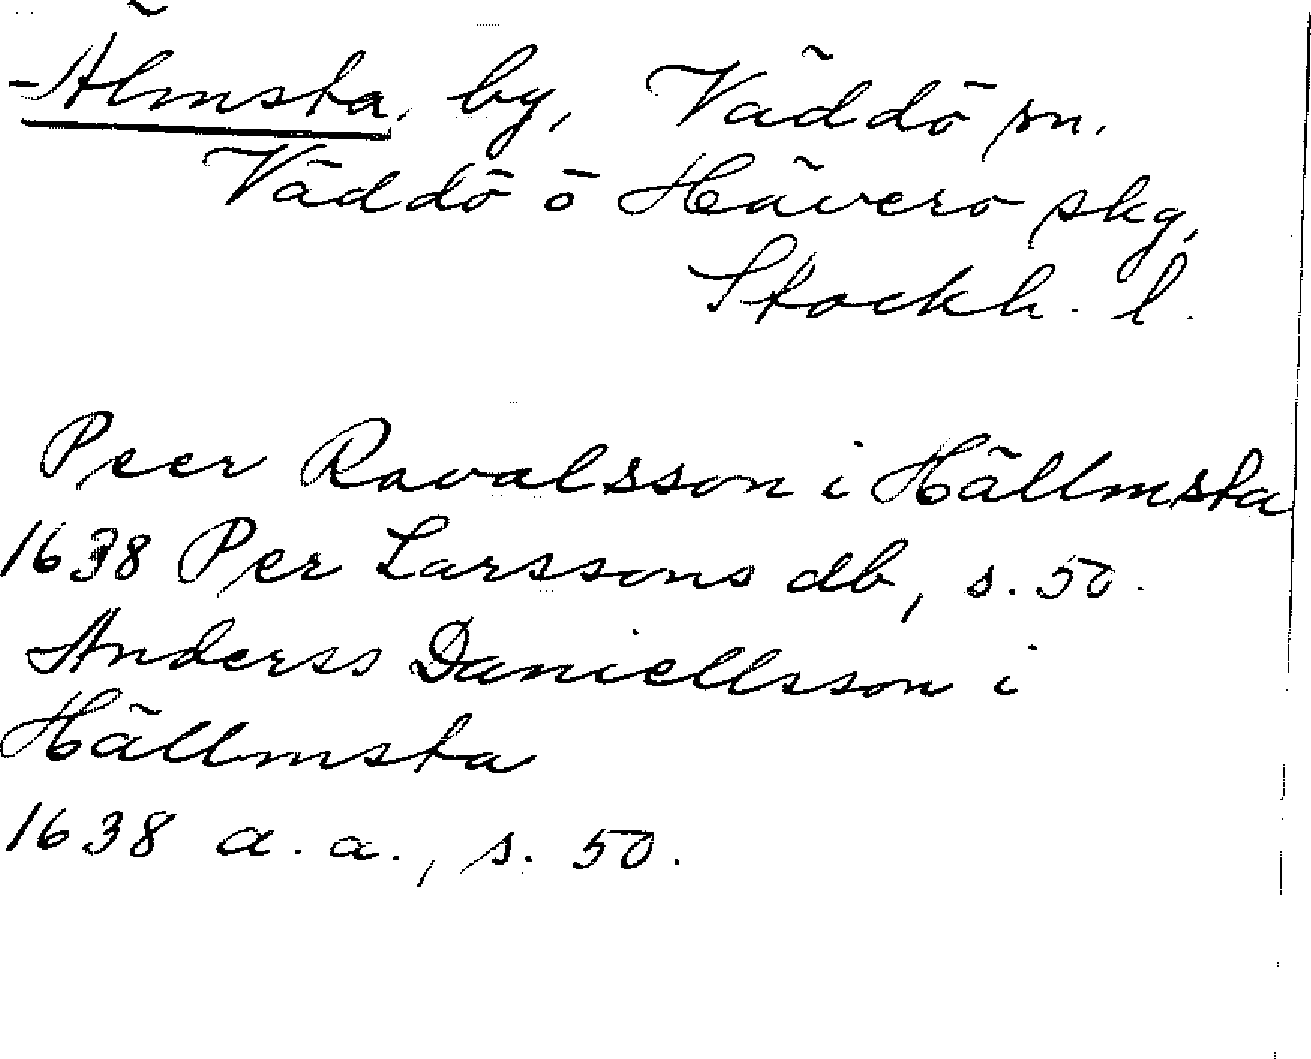 Älmsta, by, Väddö sn.
Väddö o Hävero skg,
Stockh. l.
Peer Ravalsson i Hällmsta
1638 Per Larssons db, s. 50.
Anderss Daniellsson i
Hällmsta
1638 a. a., s. 50.